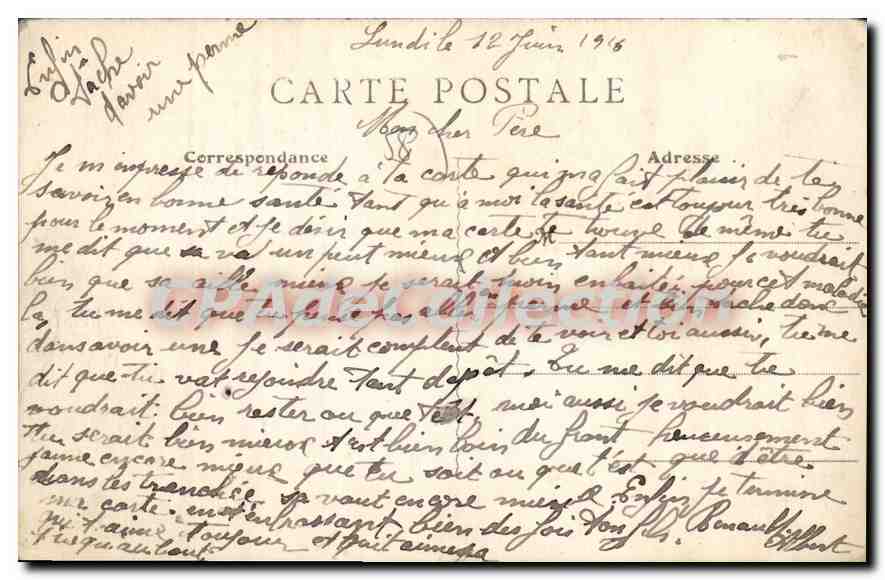 Lundi le 12 Juin 1916
Enfin
tache
d'avoir
une perme
CARTE POSTALE
Mon cher Père
58
Correspondance
Adresse
Je m'empresse de reponde à ta carte qui m'a fait plaisir de te
savoir en bonne santé tant qu'à moi la santé est toujour très bonne
pour le moment et je désir que ma carte te trouve de même tu
me dit que sa va un peut mieux et bien tant mieux je voudrait
bien que sa aille mieux je serait moin enbaité pour cet maladie
la, tu me dit que tu peut pas aller donc
CPAdeCollection
dans avoir une je serait complent de te voir et toi aussi, tu me
dit que tu vat rejoindre tant depôt. Tu me dit que tu
voudrait bien rester ou que t'est, moi aussi je voudrait bien
tu serait bien mieux t'est bien loin du front heureusement
j'aime encore mieux que tu soit ou que t'est que d'être
dans les tranchée sa vaut encore mieux Enfin je termine
ma carte en t'enbrassant bien des fois ton fils. Renault Albert
qui t'aime toujour et qui t'aimera
jusqu'au bout